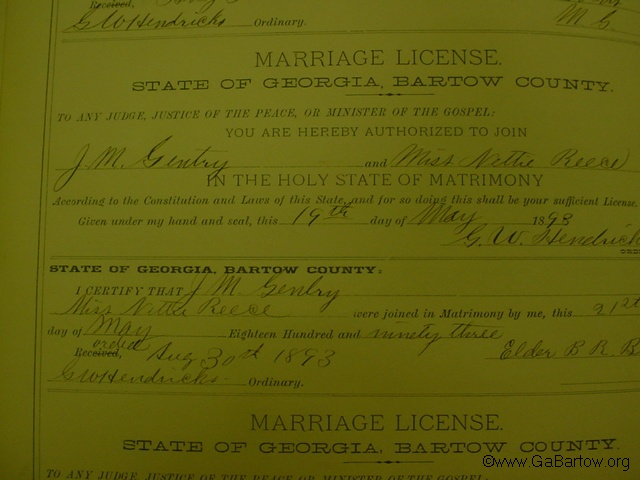 Received,
G W Hendricks Ordinary. M G
MARRIAGE LICENSE.
STATE OF GEORGIA, BARTOW COUNTY.
TO ANY JUDGE, JUSTICE OF THE PEACE, OR MINISTER OF THE GOSPEL:
YOU ARE HEREBY AUTHORIZED TO JOIN
J. M. Gentry and Miss Nettie Reece
IN THE HOLY STATE OF MATRIMONY
According to the Constitution and Laws of this State, and for so doing this shall be your sufficient License.
Given under my hand and seal, this 19th day of May 1893
G. W. Hendrick
STATE OF GEORGIA, BARTOW COUNTY:
I CERTIFY THAT J M Gentry
Miss Nettie Reece were joined in Matrimony by me, this 21st
day of May Eighteen Hundred and ninety three
Received, Aug 30th 1893 Elder B R B
G W Hendricks Ordinary.
MARRIAGE LICENSE.
STATE OF GEORGIA, BARTOW COUNTY.
TO ANY JUDGE, JUSTICE OF THE PEACE OR MINISTER OF THE GOSPEL:
©www.GaBartow.org